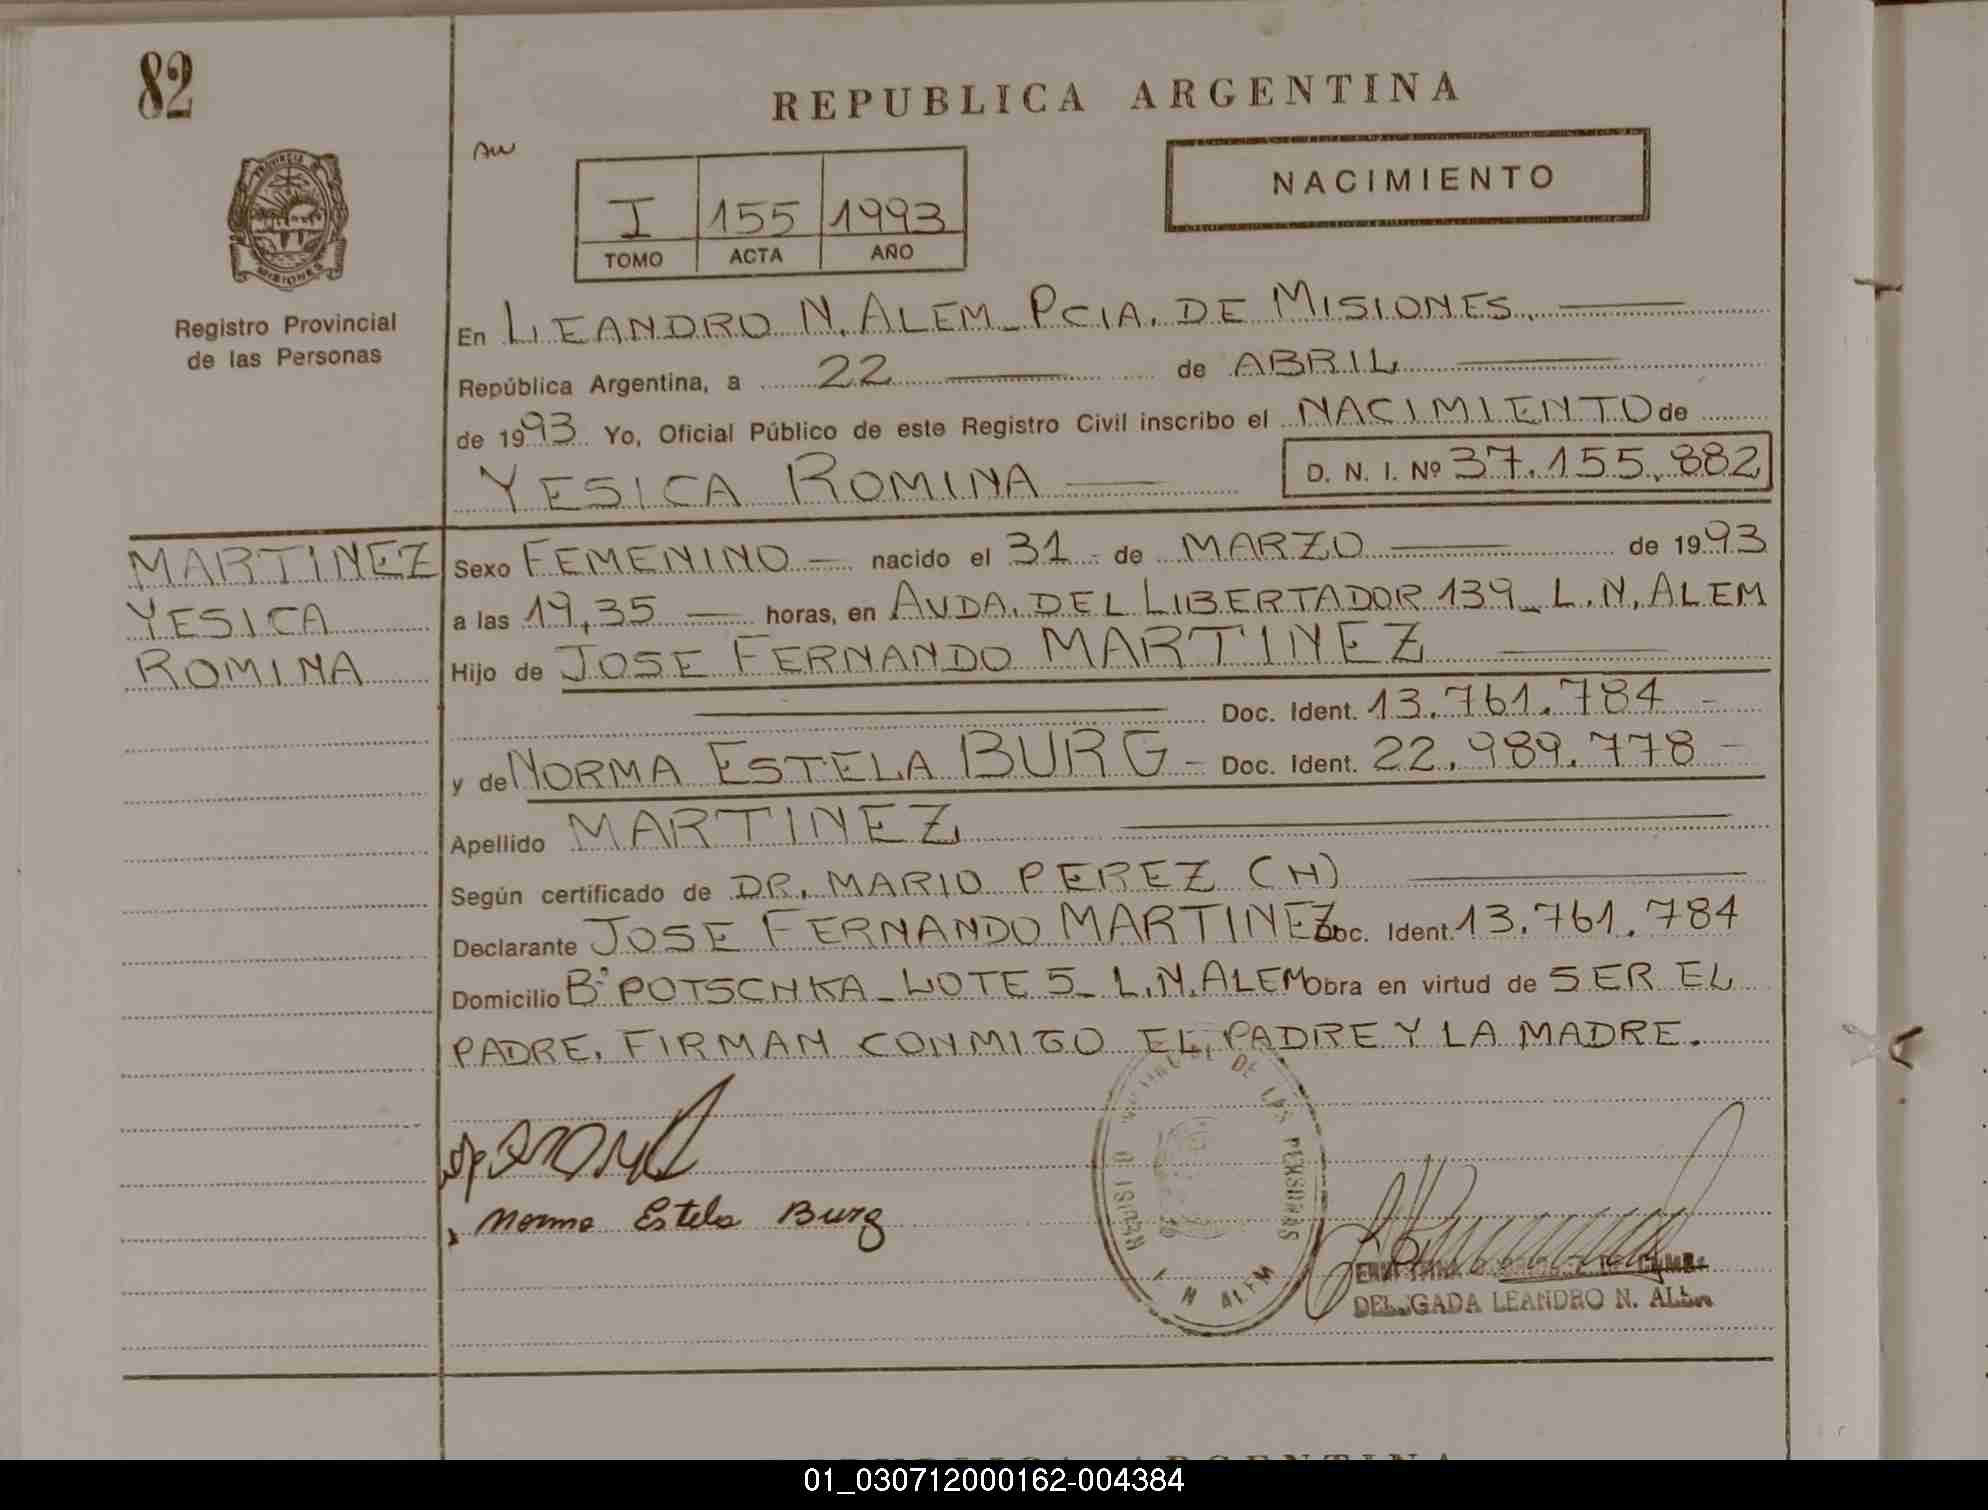 82
REPUBLICA ARGENTINA
NACIMIENTO
I 155 1993
TOMO ACTA AÑO
PROVINCIA DE
MISIONES
Registro Provincial
de las Personas
En LEANDRO N. ALEM_PCIA. DE MISIONES.
República Argentina, a 22 de ABRIL
de 1993 Yo, Oficial Público de este Registro Civil inscribo el NACIMIENTO de
YESICA ROMINA D. N. I. Nº 37.155.882
MARTINEZ
YESICA
ROMINA
Sexo FEMENINO nacido el 31 de MARZO de 1993
a las 19,35 horas, en AVDA. DEL LIBERTADOR 139_L.N.ALEM
Hijo de JOSE FERNANDO MARTINEZ
Doc. Ident. 13.761.784
y de NORMA ESTELA BURG - Doc. Ident. 22.989.778
Apellido MARTINEZ
Según certificado de DR. MARIO PEREZ (H)
Declarante JOSE FERNANDO MARTINEZ Doc. Ident. 13.761.784
Domicilio Bº POTSCHKA_LOTE 5_L.N.ALEM Obra en virtud de SER EL
PADRE. FIRMAN CONMIGO EL PADRE Y LA MADRE.
Norma Estela Burg
DE LAS PERSONAS
L N ALEM
DELEGADA LEANDRO N. ALEM
REPUBLICA ARGENTINA
01_030712000162-004384